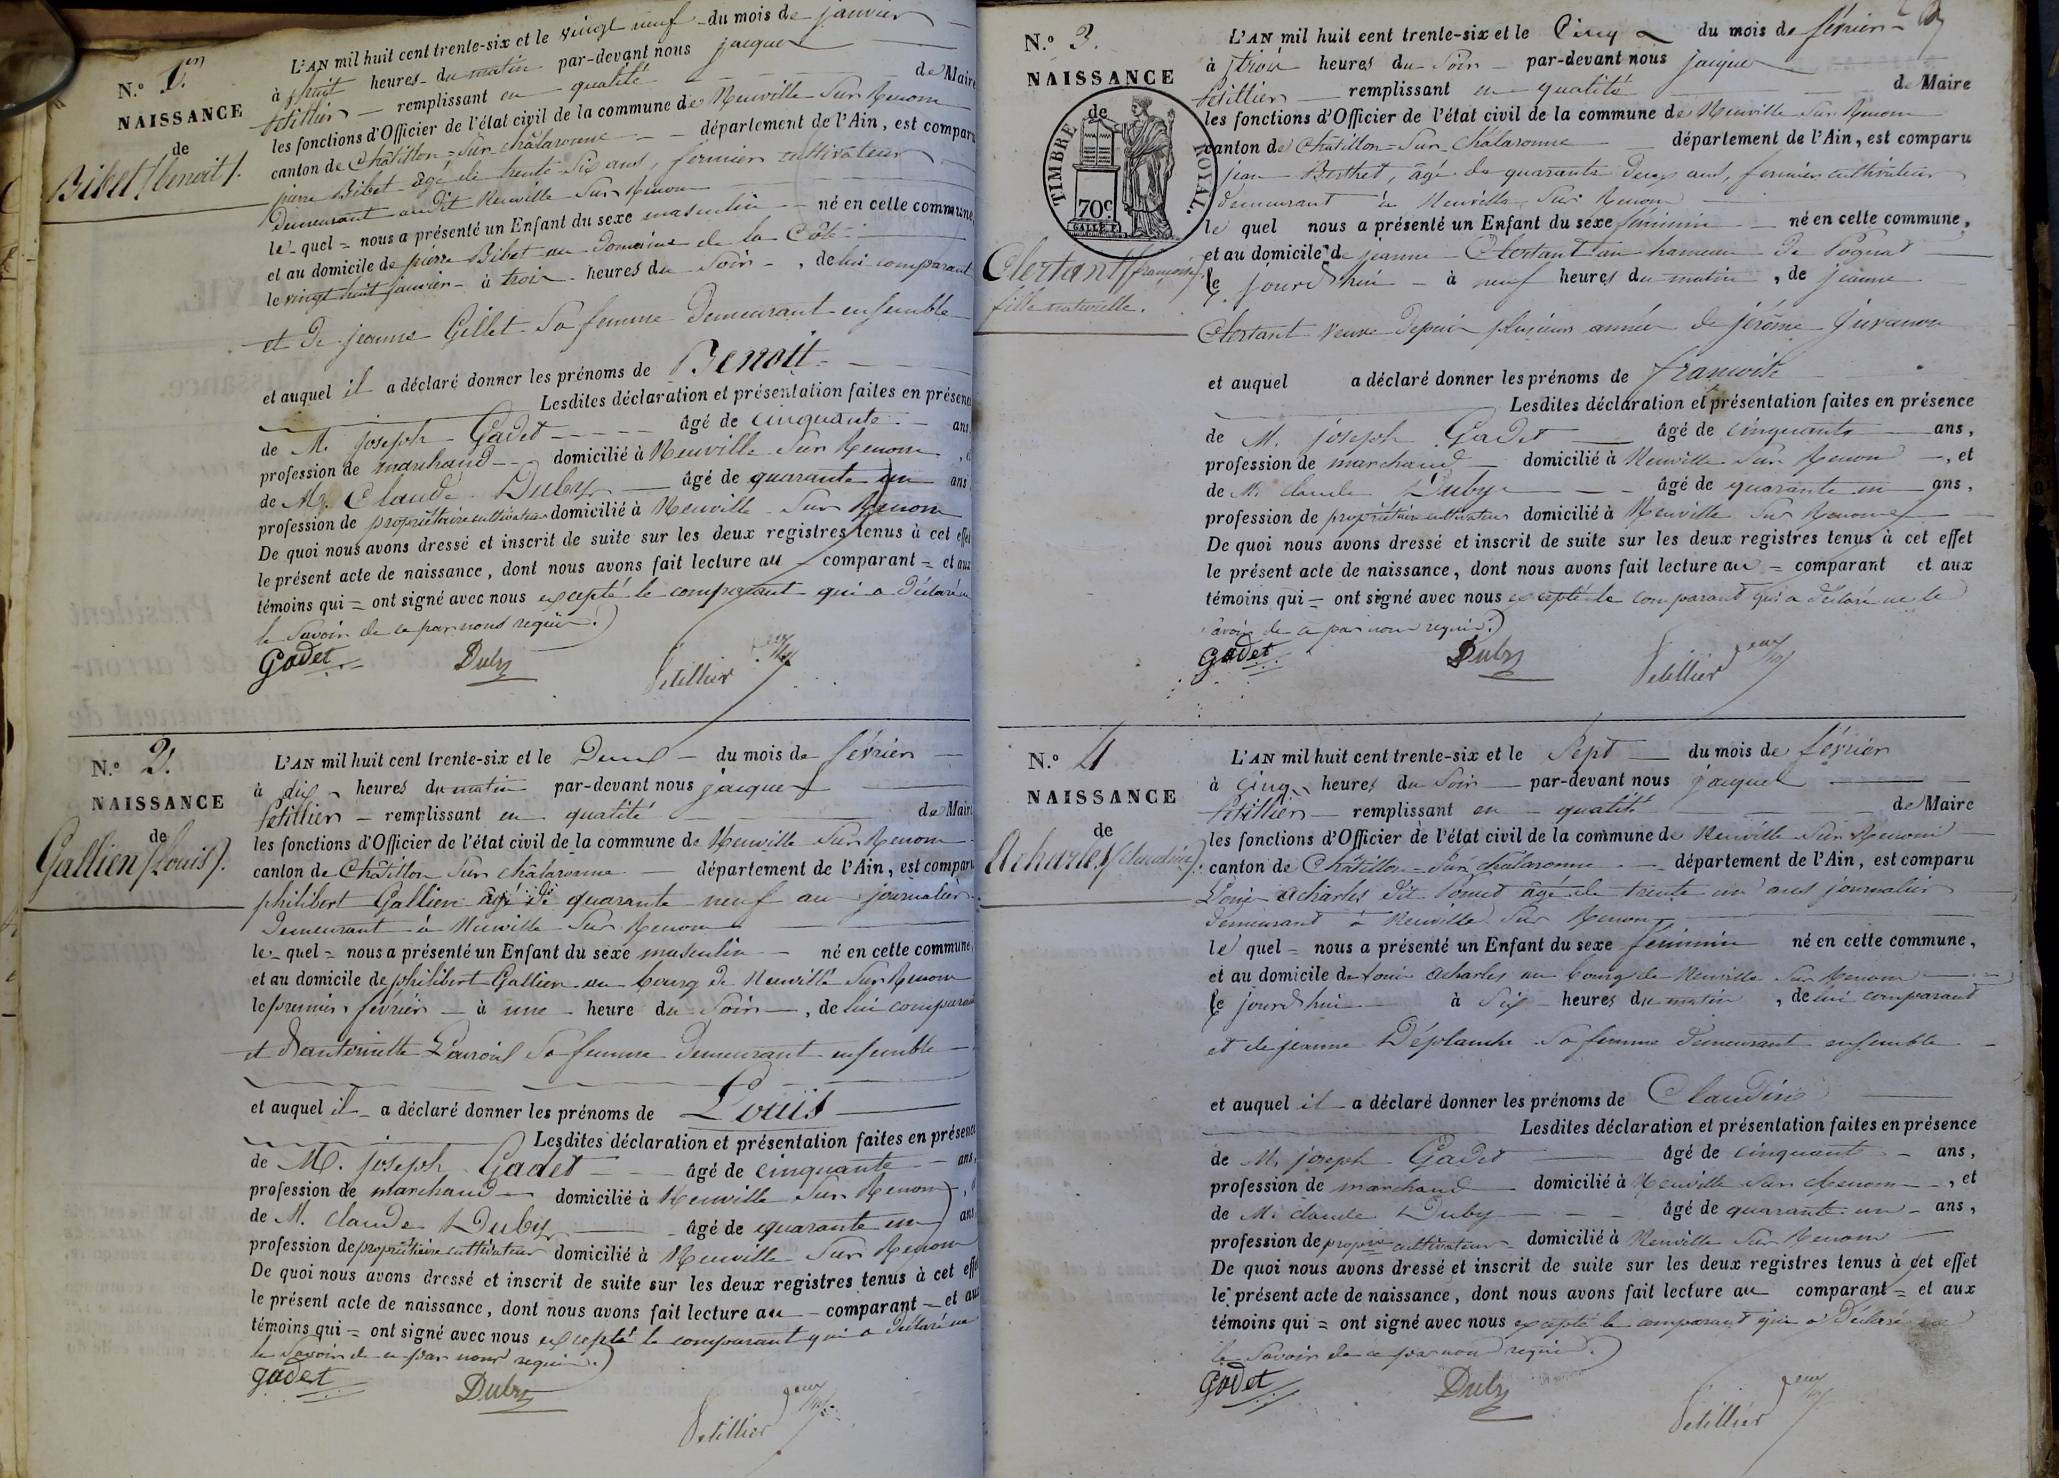 N.º 1.er
NAISSANCE
de
Bibet (benoit).
L'AN mil huit cent trente-six et le vingt neuf du mois de janvier
à huit heures du matin par-devant nous jacques
Petillier remplissant en qualité de Maire
les fonctions d'Officier de l'état civil de la commune de Neuville Sur Renom
canton de Châtillon-Sur-châlaronne département de l'Ain, est comparu
pierre Bibet âgé de trente Six ans, fermier cultivateur
Demeurant audit Neuville Sur Renom
le quel = nous a présenté un Enfant du sexe masculin né en cette commune,
et au domicile de pierre Bibet au Domaine de la Côte
le vingt huit janvier à trois heures du Soir, de lui comparant
et de jeanne Gillet Sa femme Demeurant ensemble
et auquel il a déclaré donner les prénoms de Benoit
Lesdites déclaration et présentation faites en présence
de M. joseph Gadet âgé de cinquante ans,
profession de marchand domicilié à Neuville Sur Renom, et
de M. Claude Duby âgé de quarante un ans
profession de propriétaire cultivateur domicilié à Neuville Sur Renom
De quoi nous avons dressé et inscrit de suite sur les deux registres tenus à cet effet
le présent acte de naissance, dont nous avons fait lecture au comparant = et aux
témoins qui = ont signé avec nous excepté le comparant qui a Déclaré ne
le Savoir de ce par nous requis.)
Gadet Duby Petillier
N.º 2.
NAISSANCE
de
Gallien (Louis).
L'AN mil huit cent trente-six et le Deux du mois de février
à dix heures du matin par-devant nous jacques
Petillier remplissant en qualité de Maire
les fonctions d'Officier de l'état civil de la commune de Neuville Sur Renom
canton de Châtillon Sur châlaronne département de l'Ain, est comparu
philibert Gallien âgé de quarante neuf ans journalier
Demeurant à Neuville Sur Renom
le quel = nous a présenté un Enfant du sexe masculin né en cette commune,
et au domicile de philibert Gallien au bourg de Neuville Sur Renom
le premier février à une heure du Soir, de lui comparant
et d'antoinette Sa femme Demeurant ensemble
et auquel il a déclaré donner les prénoms de Louis
Lesdites déclaration et présentation faites en présence
de M. joseph Gadet âgé de cinquante ans,
profession de marchand domicilié à Neuville Sur Renom, et
de M. claude Duby âgé de quarante un ans
profession de propriétaire cultivateur domicilié à Neuville Sur Renom
De quoi nous avons dressé et inscrit de suite sur les deux registres tenus à cet effet
le présent acte de naissance, dont nous avons fait lecture au comparant et aux
témoins qui = ont signé avec nous excepté le comparant qui a Déclaré ne
le Savoir de ce par nous requis.)
gadet Duby Petillier
N.º 3.
NAISSANCE
de
TIMBRE ROYAL.
70c
Clertant (françoise).
fille naturelle.
L'AN mil huit cent trente-six et le Cinq du mois de février
à trois heures du Soir par-devant nous jacques
Petillier remplissant en qualité de Maire
les fonctions d'Officier de l'état civil de la commune de Neuville Sur Renom
canton de Châtillon-Sur-Châlaronne département de l'Ain, est comparu
jean Berthet, âgé de quarante Deux ans, fermier cultivateur
demeurant à Neuville Sur Renom
le quel nous a présenté un Enfant du sexe féminin né en cette commune,
et au domicile de jeanne Clertant au hameau de Pognat
le jourd'hui à neuf heures du matin, de jeanne
Clertant veuve Depuis plusieurs années de jérôme
et auquel a déclaré donner les prénoms de françoise
Lesdites déclaration et présentation faites en présence
de M. joseph Gadet âgé de cinquante ans,
profession de marchand domicilié à Neuville Sur Renom, et
de M. claude Duby âgé de quarante un ans,
profession de propriétaire cultivateur domicilié à Neuville Sur Renom
De quoi nous avons dressé et inscrit de suite sur les deux registres tenus à cet effet
le présent acte de naissance, dont nous avons fait lecture au = comparant et aux
témoins qui = ont signé avec nous excepté le comparant qui a déclaré ne le
Savoir de ce par nous requis.)
Gadet Duby Petillier
N.º 4
NAISSANCE
de
Acharles (claudine).
L'AN mil huit cent trente-six et le Sept du mois de février
à Cinq heures du Soir par-devant nous jacques
Petillier remplissant en qualité de Maire
les fonctions d'Officier de l'état civil de la commune de Neuville Sur Renom
canton de Châtillon Sur châlaronne département de l'Ain, est comparu
Louis acharles dit âgé de trente un ans journalier
Demeurant à Neuville Sur Renom
le quel = nous a présenté un Enfant du sexe féminin né en cette commune,
et au domicile de Louis acharles au bourg de Neuville Sur Renom
le jourd'hui à Six heures du matin, de lui comparant
et de jeanne Déplanche Sa femme Demeurant ensemble
et auquel il a déclaré donner les prénoms de Claudine
Lesdites déclaration et présentation faites en présence
de M. joseph Gadet âgé de cinquante ans,
profession de marchand domicilié à Neuville Sur Renom, et
de M. claude Duby âgé de quarante un ans,
profession de propre cultivateur domicilié à Neuville Sur Renom
De quoi nous avons dressé et inscrit de suite sur les deux registres tenus à cet effet
le présent acte de naissance, dont nous avons fait lecture au comparant = et aux
témoins qui = ont signé avec nous excepté le comparant qui a Déclaré ne
le Savoir de ce par nous requis.)
Gadet Duby Petillier